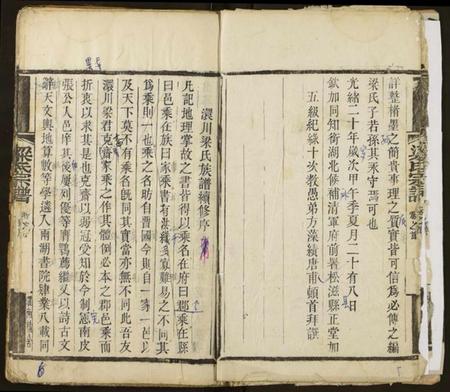 詳整楮墨之簡貴事理之質實皆可信為必傳之編
梁氏子若孫其永守焉可也
光緒二十年歲次甲午季夏月二十有八日
欽加同知銜湖北候補清軍府前署松滋縣正堂加
五級紀錄十次教愚弟方藻續唐甫頓首拜譔
澴川梁氏族譜續修序
凡記地理掌故之書皆得以乘名在府曰郡乘在縣
曰邑乘在族曰家乘書有繁
為乘則一也乘之名助自晉國今則自一家一邑以
及天下莫不有乘名既同其實當亦無不同此吾友
澴川梁君克齋家乘之作其體倒必本之郡邑乘而
折衷以求其是也克齋以弱冠受知於今制憲南皮
張公人邑庠其後屢列優等
辭天文輿地算數等學選入兩湖書院肄業八載同
梁氏宗譜
6